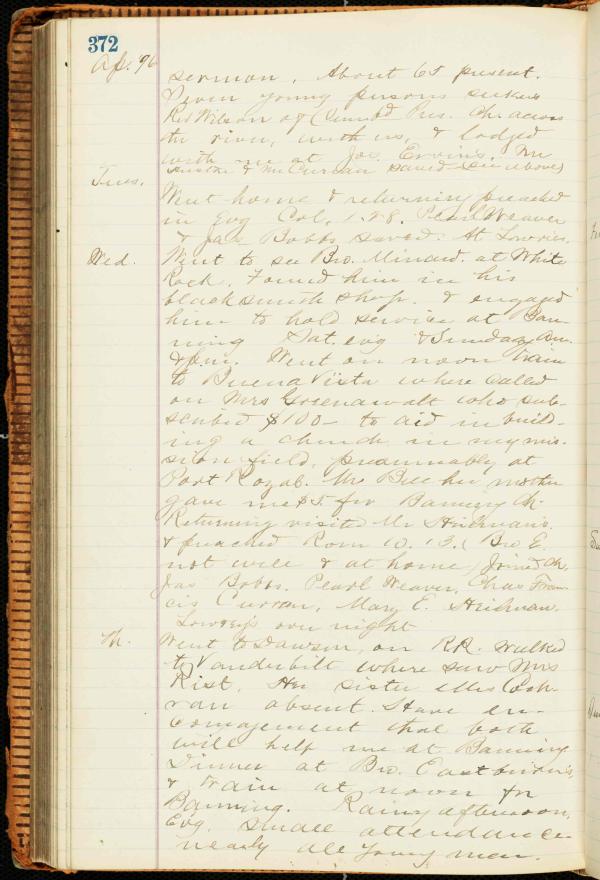 372
Ap. 96
sermon. About 65 present.
Seven young persons seekers
Rev Wilson of (Cumb'd Pres. Ch. across
the river, with us, & lodged
with me at Jos. Ervin's. Mr
& Mrs Curran saved see above)
Tues.
Went home & returning preached
in Evg Col. 1.28. Pearl Weaver
& Jas Bobbs saved. At Lowries.
Wed.
Went to see Bro. Minard at White
Rock. Found him in his
blacksmith shop. & engaged
him to hold service at Ban-
ning Sat. evg & Sunday Am.
& p.m. Went on noon train
to Buena Vista where called
on Mrs Greenawalt who sub-
scribed $100- to aid in build-
ing a church in my mis-
sion field, presumably at
Port Royal. Mrs Bee her mother
gave me $5. for Banning Ch.
Returning visited Mr Hickman's
& preached Rom 10.13. (Bro E.
not well & at home) Joined Ch.
Jas Bobbs. Pearl Weaver, Chas Fran-
cis Curran, Mary E. Hickman.
Lowrey's over night
Th.
Went to Dawson, on RR. Walked
to Vanderbilt where saw Mrs
Rist. Her sister Mrs Coch-
ran absent. Have en-
couragement that both
will help me at Banning
Dinner at Bro. Eastburn's,
& train at noon for
Banning. Rainy afternoon,
Evg. small attendance
nearly all young men.